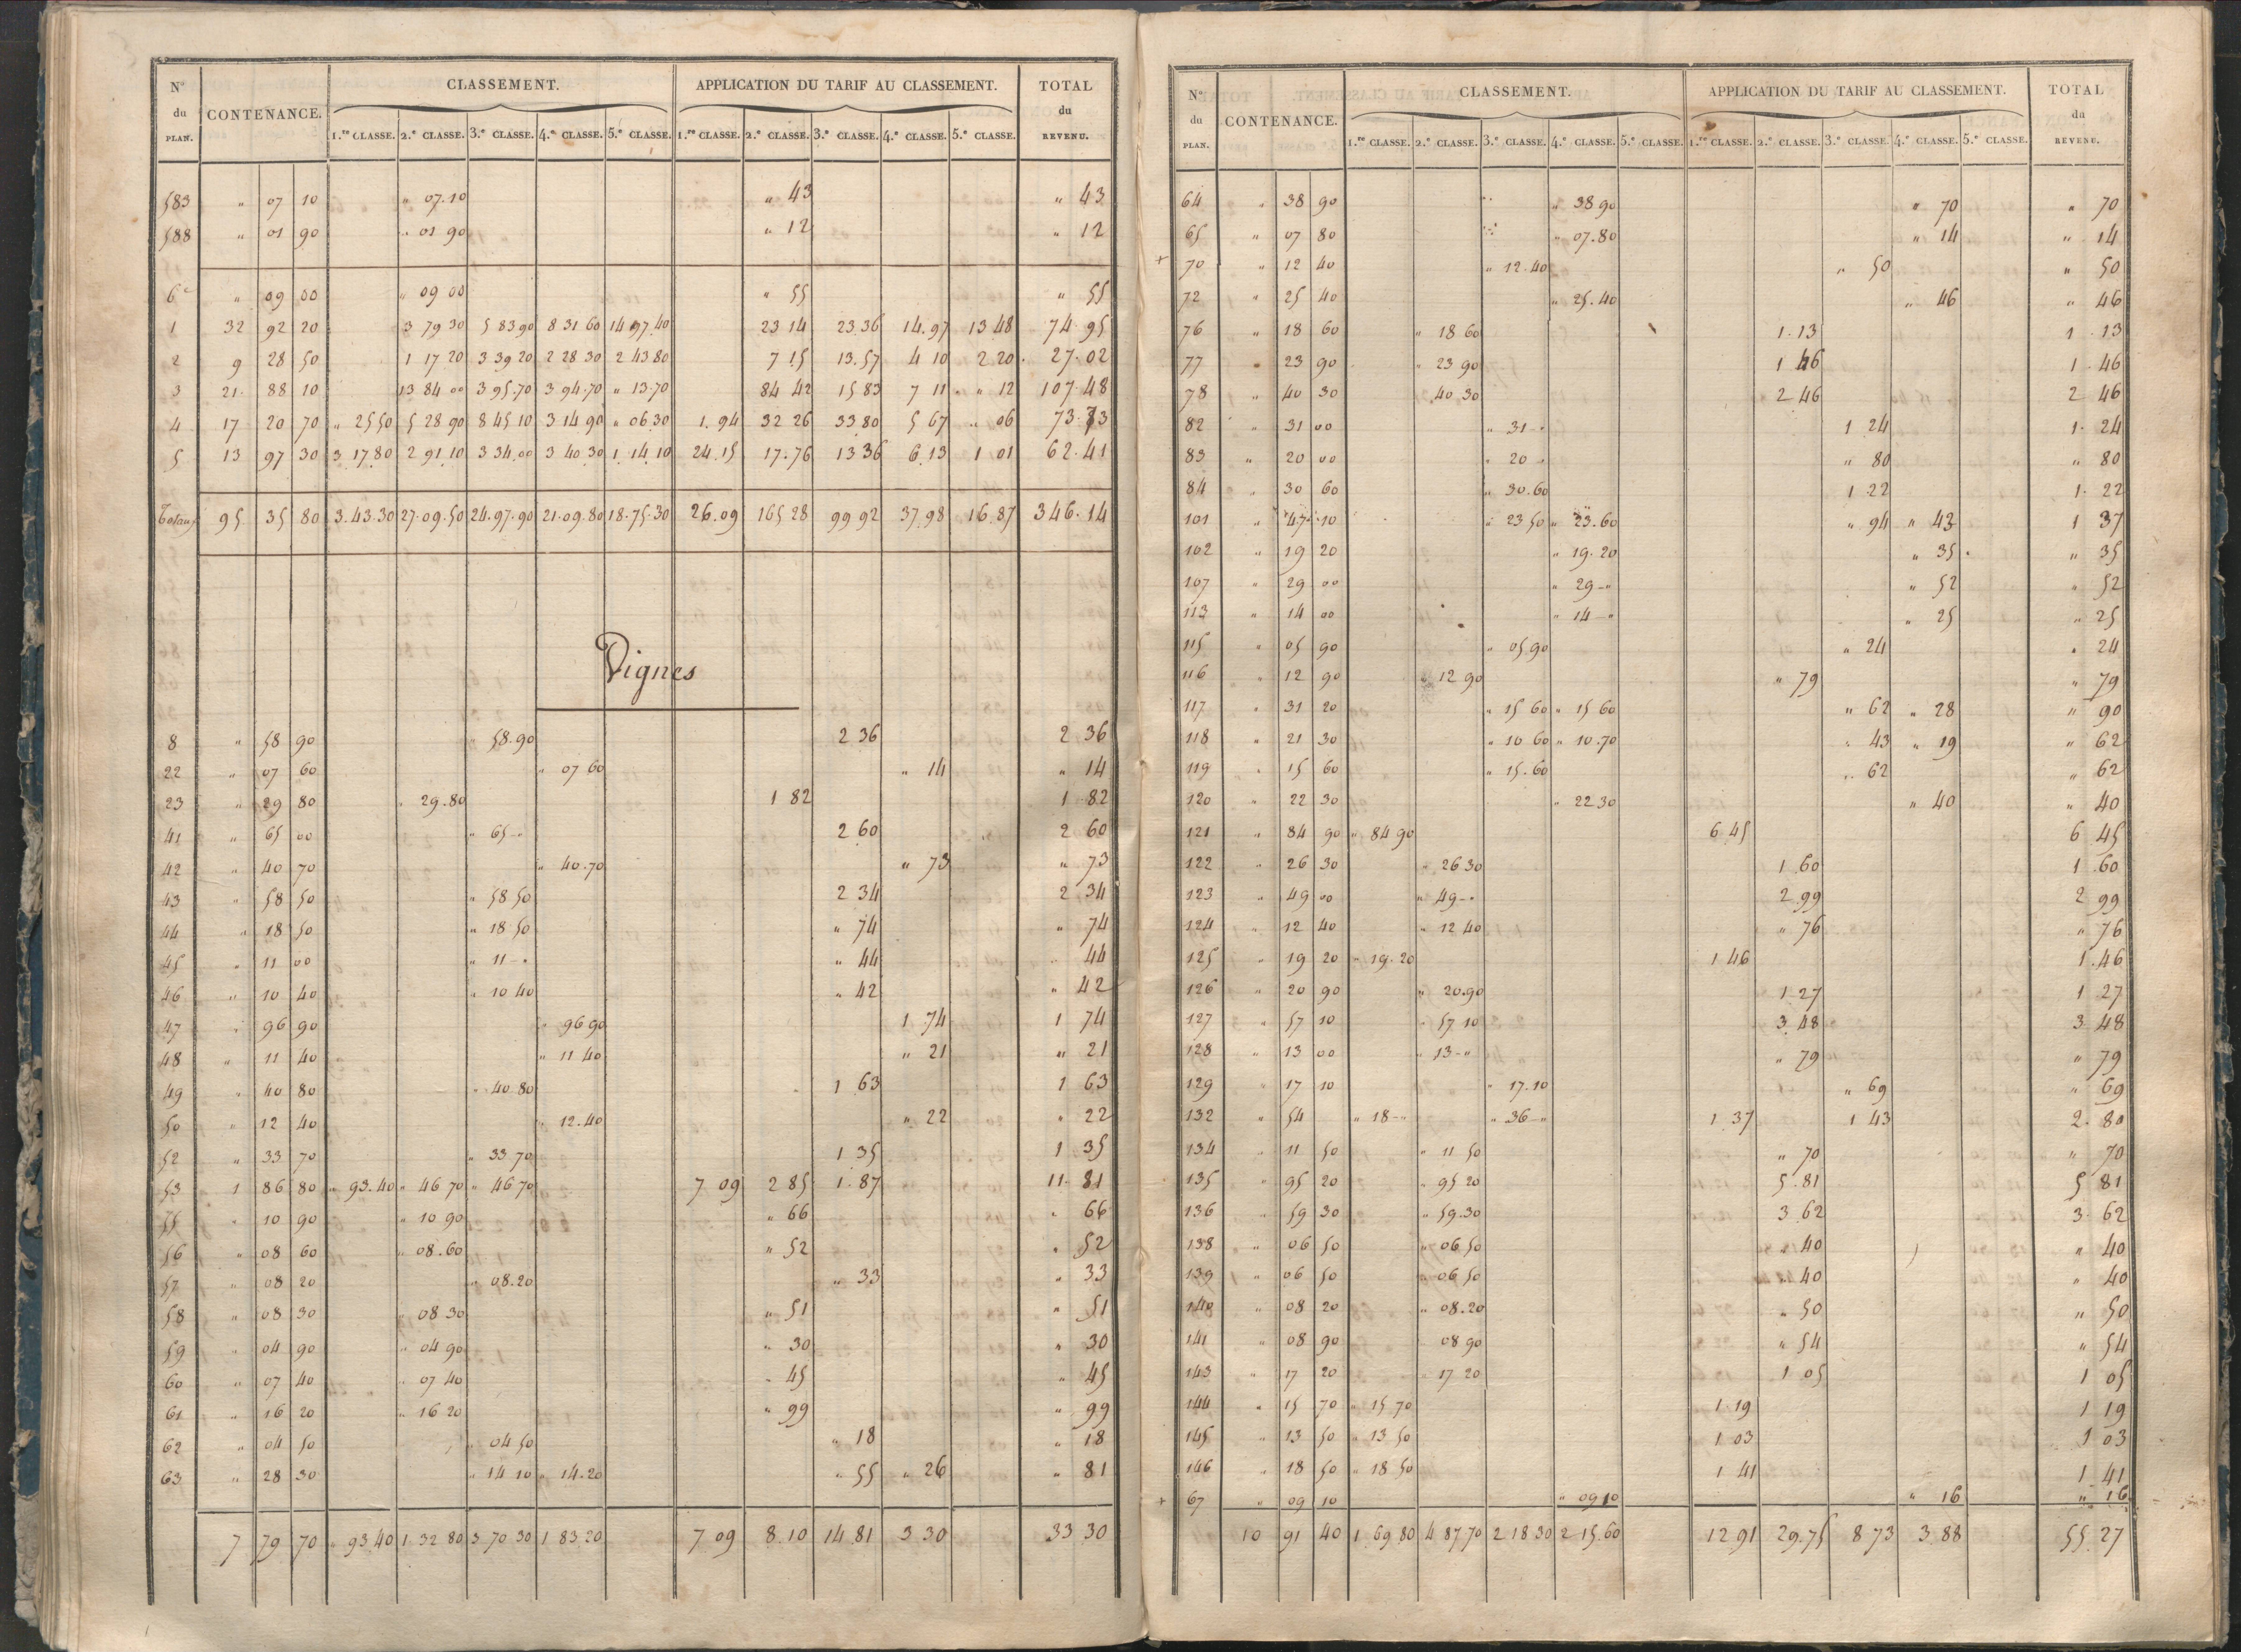 N° du PLAN. CONTENANCE. CLASSEMENT. APPLICATION DU TARIF AU CLASSEMENT. TOTAL du REVENU.
1.re CLASSE. 2.e CLASSE. 3.e CLASSE. 4.e CLASSE. 5.e CLASSE. 1.re CLASSE. 2.e CLASSE. 3.e CLASSE. 4.e CLASSE. 5.e CLASSE.
583 " 07 10 " 07.10 " 43 " 43
588 " 01 90 " 01 90 " 12 " 12
6e " 09 00 " 09 00 " 55 " 55
1 32 92 20 3 79 30 5 83 90 8 31 60 14 97.40 23 14 23.36 14.97 13 48 74.95
2 9 28 50 1 17 20 3 39 20 2 28 30 2 43 80 7 15 13.57 4 10 2 20 27.02
3 21 88 10 13 84 00 3 95.70 3 94.70 " 13.70 84 42 15 83 7 11 " 12 107.48
4 17 20 70 " 25 50 5 28 90 8 45 10 3 14 90 " 06.30 1.94 32 26 33 80 5 67 " 06 73.73
5 13 97 30 3 17.80 2 91.10 3 34.00 3 40 30 1 14 10 24.15 17.76 13 36 6.13 1 01 62.41
Totaux 95 35 80 3.43.30 27.09.50 24.97.90 21.09.80 18.75.30 26.09 165 28 99 92 37.98 16.87 346.14
Vignes
8 " 58 90 " 58.90 2 36 2 36
22 " 07 60 " 07 60 " 14 " 14
23 " 29 80 " 29.80 1 82 1 82
41 " 65 00 " 65 - " 2 60 2 60
42 " 40 70 " 40.70 " 73 " 73
43 " 58 50 " 58 50 2 34 2 34
44 " 18 50 " 18 50 " 74 " 74
45 " 11 00 " 11 - " " 44 " 44
46 " 10 40 " 10 40 " 42 " 42
47 " 96 90 " 96 90 1 74 1 74
48 " 11 40 " 11 40 " 21 " 21
49 " 40 80 " 40.80 1 63 1 63
50 " 12 40 " 12.40 " 22 " 22
52 " 33 70 " 33 70 1 35 1 35
53 1 86 80 " 93.40 " 46 70 " 46 70 7 09 2 85 1.87 11.81
55 " 10 90 " 10 90 " 66 " 66
56 " 08 60 " 08.60 " 52 " 52
57 " 08 20 " 08.20 " 33 " 33
58 " 08 30 " 08 30 " 51 " 51
59 " 04 90 " 04 90 " 30 " 30
60 " 07 40 " 07 40 " 45 " 45
61 " 16 20 " 16 20 " 99 " 99
62 " 04 50 " 04 50 " 18 " 18
63 " 28 30 " 14 10 " 14.20 " 55 " 26 " 81
7 79 70 " 93 40 1 32 80 3 70 30 1 83 20 7 09 8.10 14 81 3 30 33 30
N° du PLAN. CONTENANCE. CLASSEMENT. APPLICATION DU TARIF AU CLASSEMENT. TOTAL du REVENU.
1.re CLASSE. 2.e CLASSE. 3.e CLASSE. 4.e CLASSE. 5.e CLASSE. 1.re CLASSE. 2.e CLASSE. 3.e CLASSE. 4.e CLASSE. 5.e CLASSE.
64 " 38 90 " 38 90 " 70 " 70
65 " 07 80 " 07.80 " 14 " 14
+ 70 " 12 40 " 12.40 " 50 " 50
72 " 25 40 " 25.40 " 46 " 46
76 " 18 60 " 18 60 1.13 1.13
77 " 23 90 " 23 90 1 46 1.46
78 " 40 30 " 40 30 2 46 2 46
82 " 31 00 " 31 - " 1 24 1.24
83 " 20 00 " 20 - " 80 " 80
84 " 30 60 " 30.60 1 22 1.22
101 " 47 10 " 23 50 " 23.60 " 94 " 43 1 37
102 " 19 20 " 19.20 " 35 " 35
107 " 29 00 " 29 - " " 52 " 52
113 " 14 00 " 14 - " " 25 " 25
115 " 05 90 " 05.90 " 24 " 24
116 " 12 90 " 12 90 " 79 " 79
117 " 31 20 " 15 60 " 15 60 " 62 " 28 " 90
118 " 21 30 " 10 60 " 10.70 " 43 " 19 " 62
119 " 15 60 " 15.60 " 62 " 62
120 " 22 30 " 22 30 " 40 " 40
121 " 84 90 " 84 90 6 45 6 45
122 " 26 30 " 26 30 1 60 1.60
123 " 49 00 " 49 - " 2 99 2 99
124 " 12 40 " 12 40 " 76 " 76
125 " 19 20 " 19.20 1 46 1.46
126 " 20 90 " 20.90 1 27 1 27
127 " 57 10 " 57 10 3 48 3 48
128 " 13 00 " 13 - " " 79 " 79
129 " 17 10 " 17.10 " 69 " 69
132 " 54 " 18 - " " 36 - " 1 37 1 43 2.80
134 " 11 50 " 11 50 " 70 " 70
135 " 95 20 " 95 20 5.81 5 81
136 " 59 30 " 59.30 3 62 3.62
138 " 06 50 " 06 50 " 40 " 40
139 " 06 50 " 06 50 " 40 " 40
140 " 08 20 " 08.20 " 50 " 50
141 " 08 90 08 90 " 54 " 54
143 " 17 20 17 20 1 05 1 05
144 " 15 70 " 15 70 1.19 1 19
145 " 13 50 " 13 50 1 03 1 03
146 " 18 50 " 18 50 1 41 1 41
+ 67 " 09 10 " 09 10 " 16 " 16
10 91 40 1.69 80 4 87 70 2 18 30 2 15.60 12 91 29.75 8 73 3.88 55.27